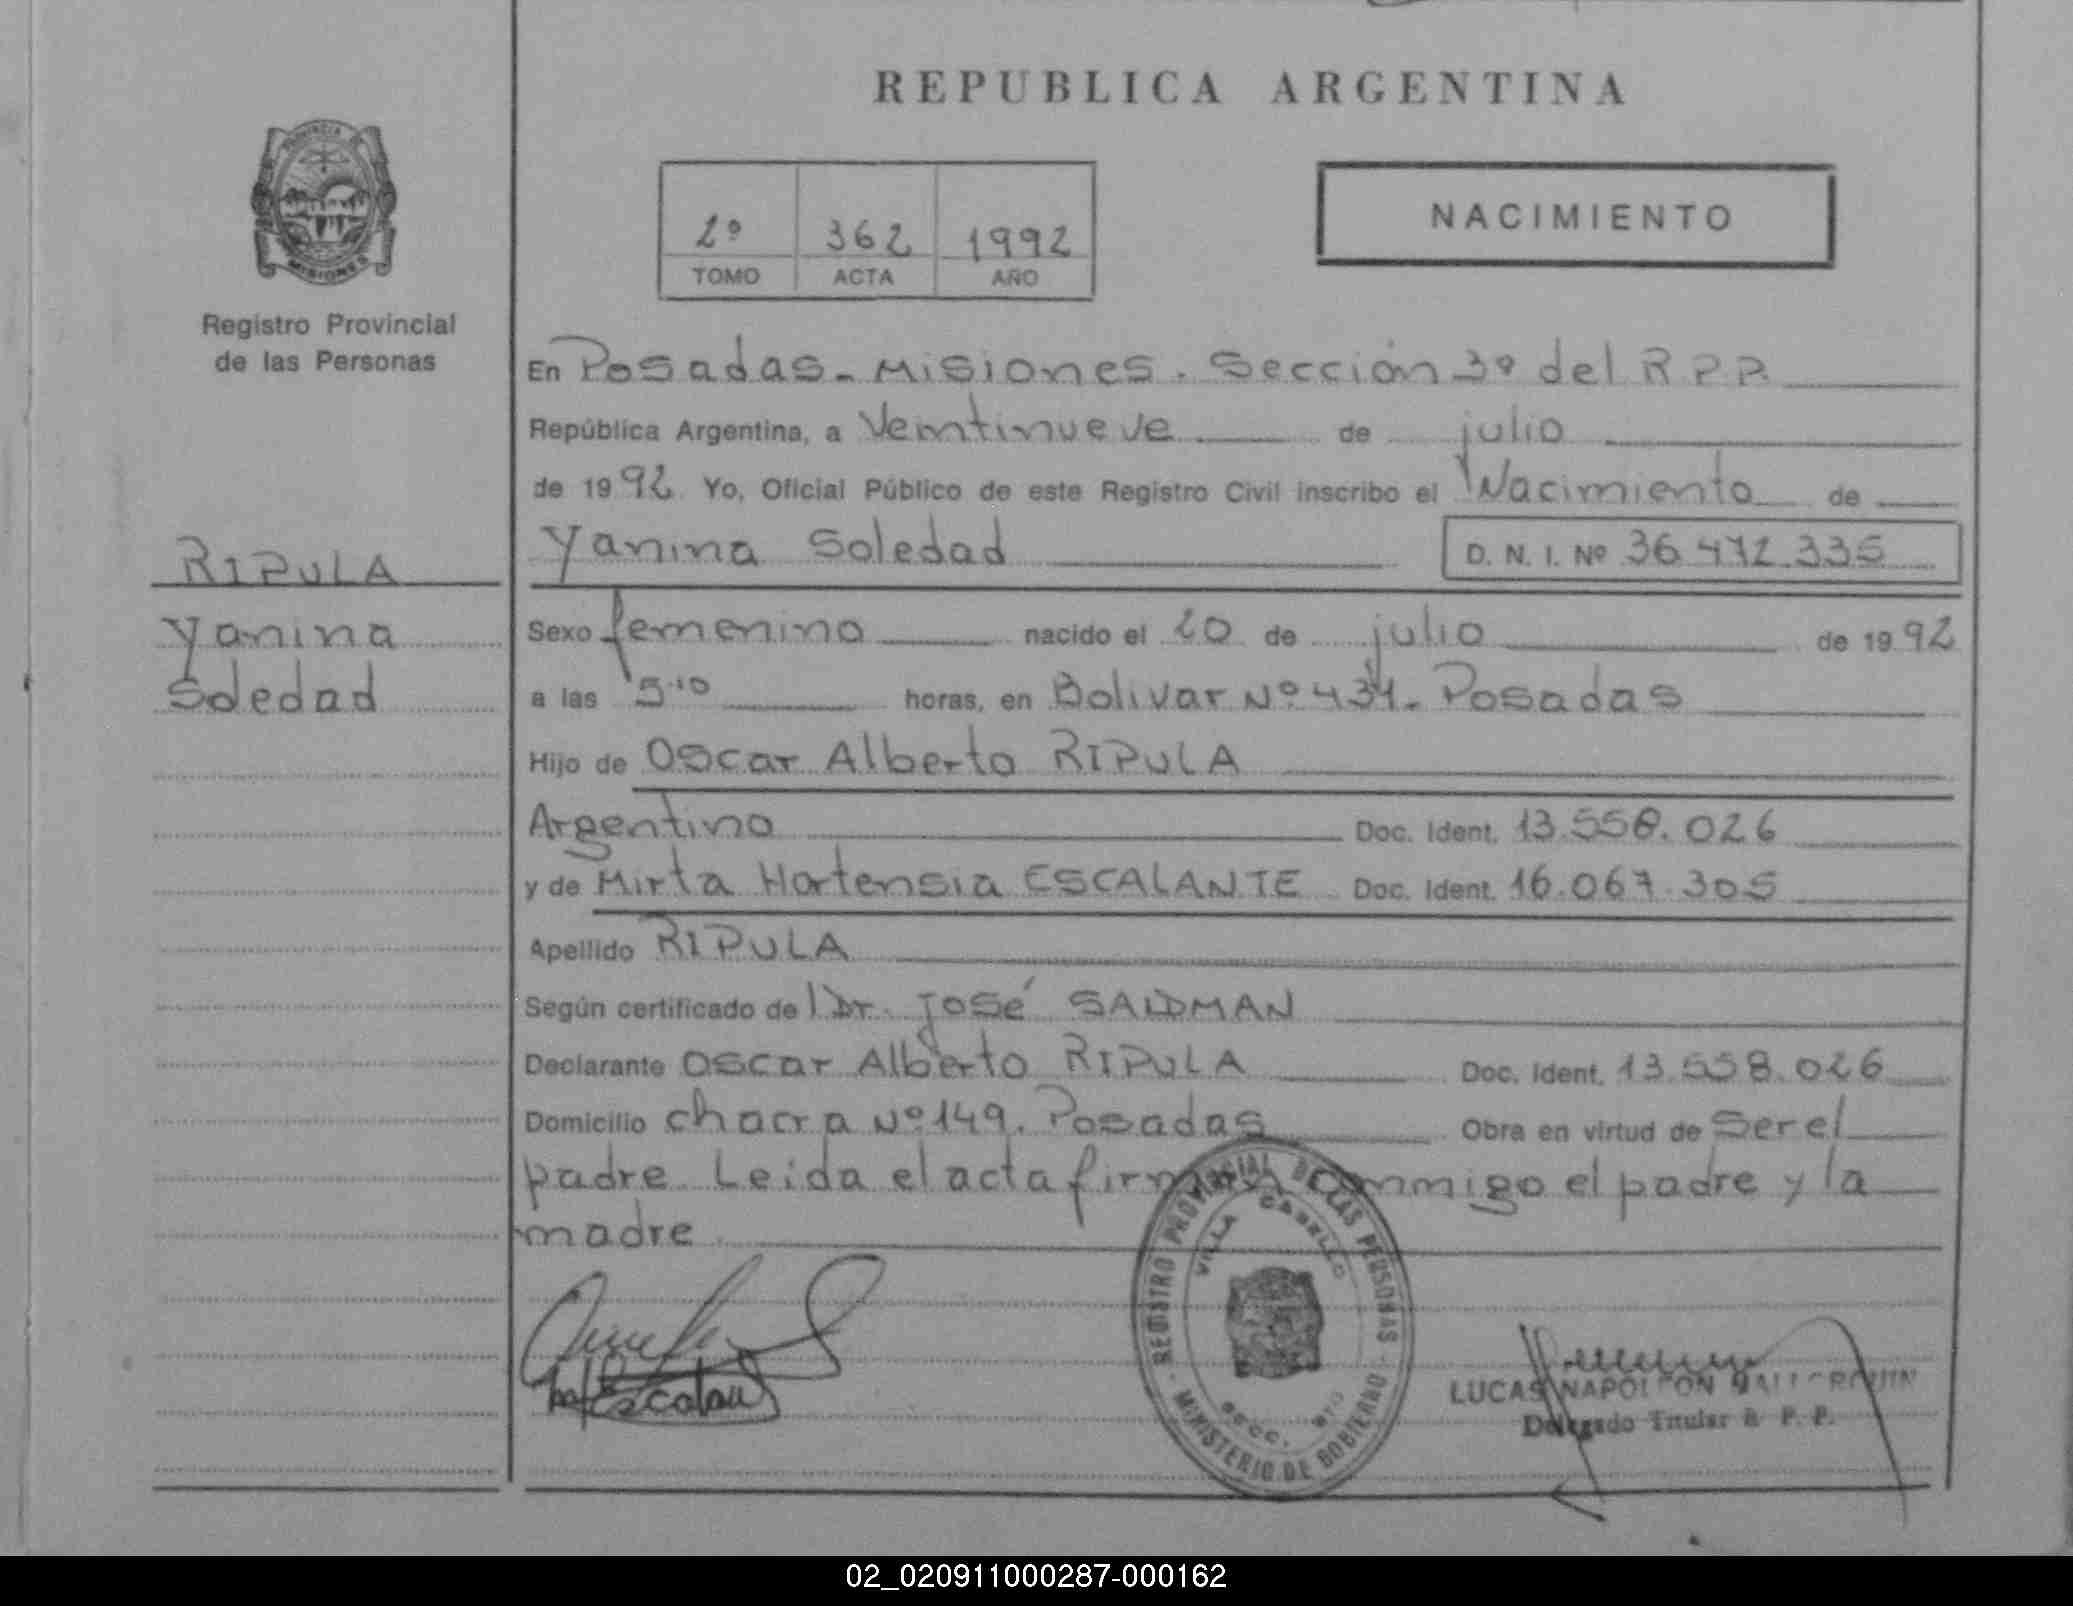 REPUBLICA ARGENTINA
PROVINCIA DE
MISIONES
Registro Provincial
de las Personas
2º 362 1992
TOMO ACTA AÑO
NACIMIENTO
En Posadas - Misiones. Sección 3º del R.P.P.
República Argentina, a Veintinueve de julio
de 1992 Yo, Oficial Público de este Registro Civil inscribo el Nacimiento de
Yanina Soledad D. N. I. Nº 36.472.335
RIPULA
Yanina
Soledad
Sexo femenino nacido el 20 de julio de 1992
a las 5:10 horas, en Bolivar Nº 434. Posadas
Hijo de Oscar Alberto RIPULA
Argentino Doc. Ident. 13.558.026
y de Mirta Hortensia ESCALANTE Doc. Ident. 16.067.305
Apellido RIPULA
Según certificado de Dr. José SALDMAN
Declarante Oscar Alberto RIPULA Doc. Ident. 13.558.026
Domicilio chacra Nº 149. Posadas Obra en virtud de Ser el
padre Leida el acta firman conmigo el padre y la
madre
REGISTRO PROVINCIAL DE LAS PERSONAS
VILLA CABELLO
SECC.
MINISTERIO DE GOBIERNO
LUCAS NAPOLEON
Delegado Titular R. P. P.
02_020911000287-000162